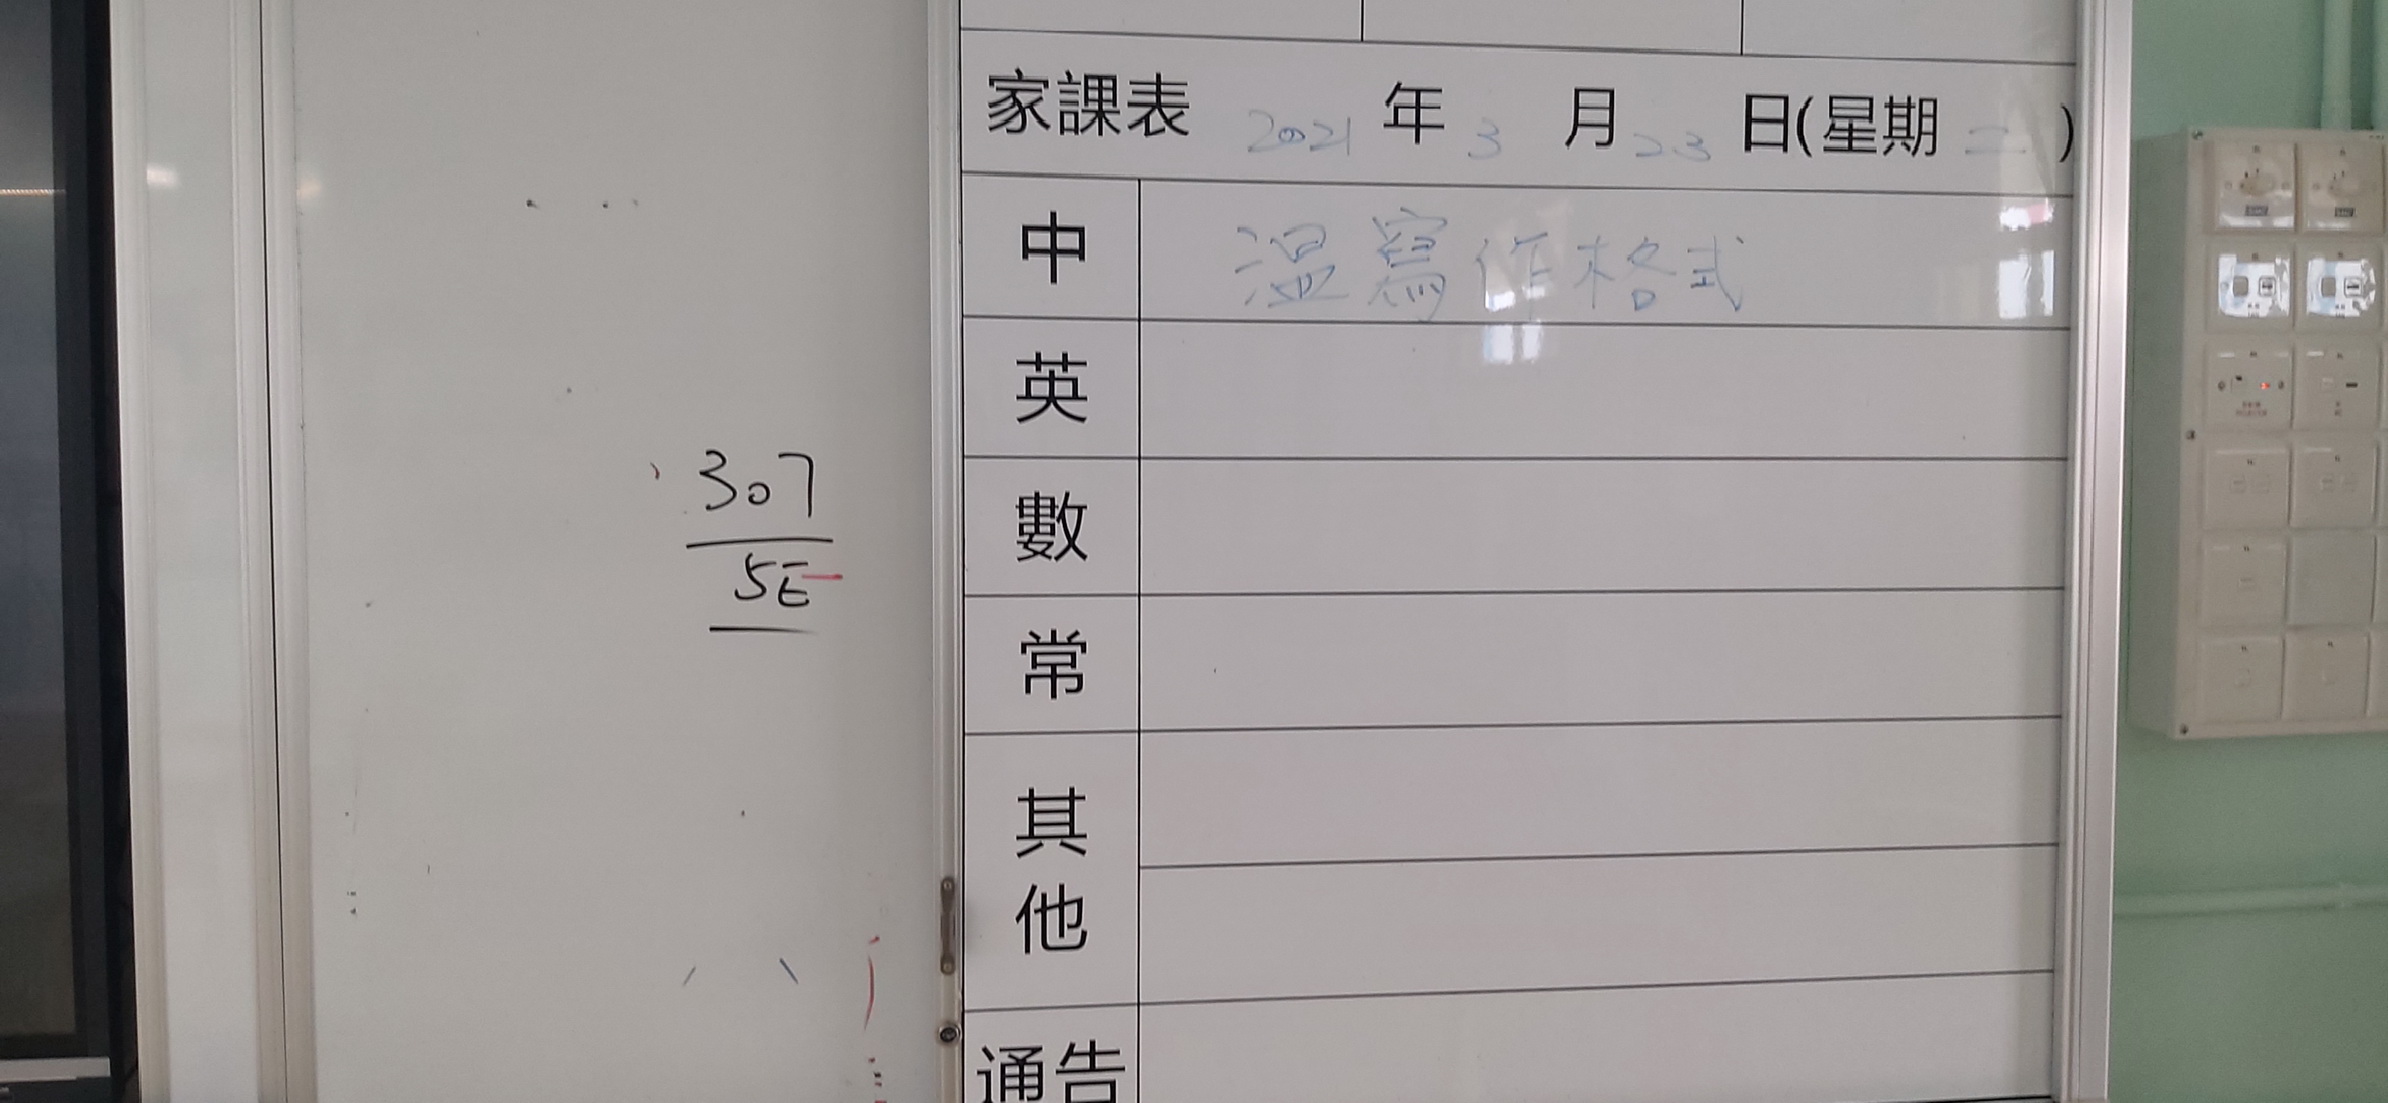 307
5E
家課表 2021 年 3 月 23 日(星期 二 )
中 温寫作格式
英
數
常
其他
通告